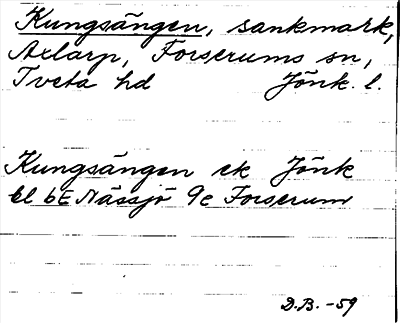 Kungsängen, sankmark,
Axlarp, Forserums sn,
Tveta hd Jönk. l.
Kungsängen ek Jönk
bl 6E Nässjö 9e Forserum
D.B. -59